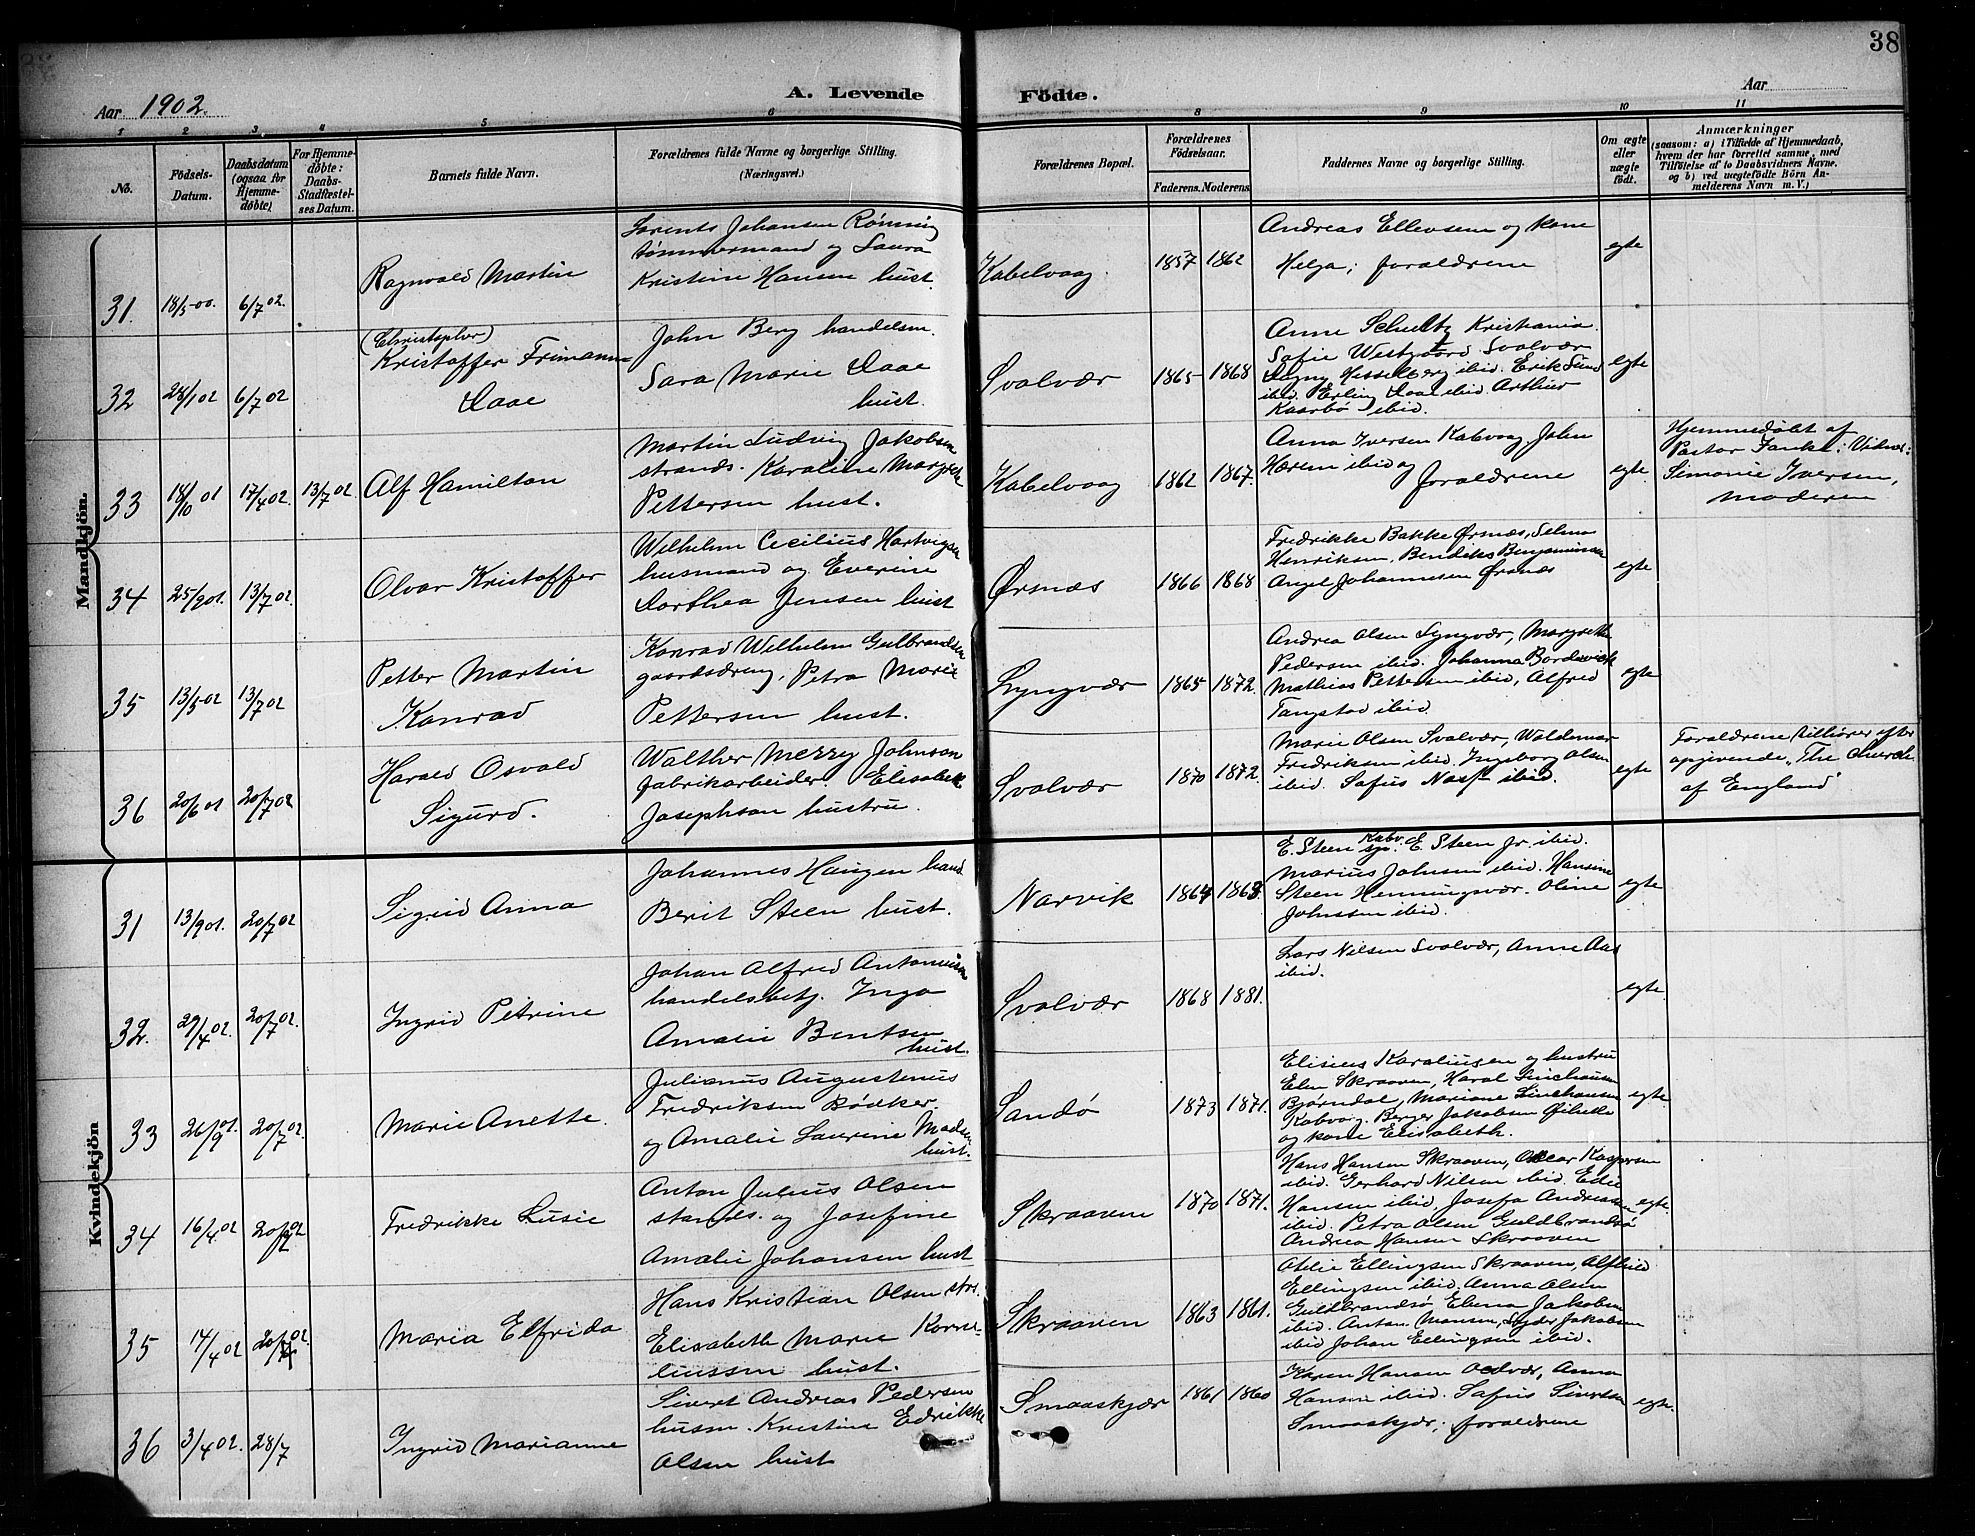 38
Aar 1902.
A. Levende Födte.
Aar
1 2 3 4 5 6 8 9 10 11
No.
Födsels-Datum.
Daabsdatum (ogsaa for Hjemme-døbte)
For Hjemme-døbte: Daabs-Stadfæstel-ses Datum.
Barnets fulde Navn.
Forældrenes fulde Navne og borgerlige Stilling.
(Næringsvei.)
Forældrenes Bopæl.
Forældrenes Födselsaar.
Faderens. Moderens.
Faddernes Navne og borgerlige Stilling.
Om ægte eller uægte födt.
Anmærkninger
(saasom: a) i Tilfælde af Hjemmedaab,
hvem der har forrettet samme, med
Tilföielse af to Daabsvidners Navne,
og b) ved uægtefödte Börn An-
melderens Navn m. V.)
Mandkjön.
31. 18/5 00. 6/7 02.
Ragnvald Martin
Lorents Johansen Rönning
tømmermand og Laura
Kristine Hansen hust.
Kabelvaag 1857 1862
Andreas Ellevsen og kone
Helga; forældrene
egte
32 28/1 02 6/7 02
(Christopher)
Kristoffer Frimann
Daae
John Berg handelsm.
Sara Marie Daae
hust.
Svolvær 1865 1868
Anne Schultz Kristiania.
Sofie Westgaard Svolvær
Dagny Hesselberg ibid. Erik Lund
ibid. Erling Daae ibid. Arthur
Kaarbø ibid.
egte
33 18/10 01 17/4 02. 13/7 02.
Alf Hamilton
Martin Ludvig Jakobsen
strands. Karoline Margrete
Pettersen hust.
Kabelvaag 1862 1867.
Anna Iversen Kabvaag John
Hærem ibid og forældrene
egte
Hjemmedøbt af
Pastor Funke: Vidner:
Simonie Iversen,
moderen
34 25/9 01. 13/7 02.
Olvar Kristoffer
Wilhelm Cecilius Hartvigsen
husmand og Everine
Dorthea Jensen hust
Ørsnæs 1866 1868
Fredrikke Bakke Ørsnæs, Selma
Henriksen, Bendiks Benjaminsen
Angel Johannesen Ørsnæs
egte
35 13/5 02 13/7 02
Petter Martin
Konrad
Konrad Wilhelm Gulbrandsen
gaardsdreng, Petra Marie
Pettersen hust.
Lyngvær 1865 1872.
Andrea Olsen Lyngvær, Margrethe
Pedersen ibid. Johanna Bordevick
Mathias Pettersen ibid, Alfred
Tangstad ibid.
egte
36 20/6 01 20/7 02
Harald Osvald
Sigurd.
Walther Merry Johnson
fabrikarbeider. Elisabeth
Josephson hustru.
Svolvær 1870 1872.
Marie Olsen Svolvær, Waldemar
Fredriksen ibid. Ingeborg Olsen
ibid. Sofus ibid.
egte
Forældrene tilhører efter
opgivende „The Church
of England"
Kvindekjön
31 13/9 01. 20/7 02
Sigrid Anna
Johannes Haugen hand
Berit Steen hust.
Narvik 1864 1863.
E. Steen Kabv. E. Steen jr. ibid.
Marius Johnsen ibid. Hansine
Steen Henningsvær. Oline
Johnsen ibid.
egte
32. 29/4 02. 20/7 02.
Ingrid Petrine
Johan Alfred Antoniusen
handelsbetj. Inga
Amalie Bentsen
hust.
Svolvær 1868 1881.
Lars Nilsen Svolvær, Anne Aas
ibid.
egte.
33 26/9 01. 20/7 02.
Marie Anette.
Julianus Augustinus
Fredriksen Bödker
og Amalie Laurine Madsen
hust.
Sandø 1873 1871.
Eliseus Karoliusen og hustru
Elen Skraaven, Haral
Bjørndal, Mariane
Kabvaag. Berger Jakobsen
og kone Elisabeth.
egte.
34 16/4 02 20/7 02
Fredrikke Lusie
Anton Julius Olsen
stands. og Josefine
Amalie Johansen hust
Skraaven 1870 1871.
Hans Hansen Skraaven, Oscar Kaspersen
ibid. Gerhard Nilsen ibid. Edie
Hansen ibid. Josefa Andreassen
ibid. Petra Olsen Guldbrandsø
Andrea Hansen Skraaven
egte.
35 17/4 02 20/7 02
Maria Elfrida
Hans Kristian Olsen
Elisabeth Marie Korne-
liussen hust.
Skraaven 1863 1861.
Otelie Ellingsen Skraaven, Alfhild
Ellingsen ibid. Anna Olsen
Guldbrandsø Elena Jakobsen
ibid. Anton Monsen, Jakobsen
ibid Johan Ellingsen ibid.
36 3/4 02. 28/7
Ingrid Marianne
Sivert Andreas Pedersen
husm. Kristine Edrikke
Olsen hust
Smaaskjær 1861 1860
Karen Hansen, Anna
Hansen ibid. Sofus Sivertsen
Smaaskjær; forældrene
egte.